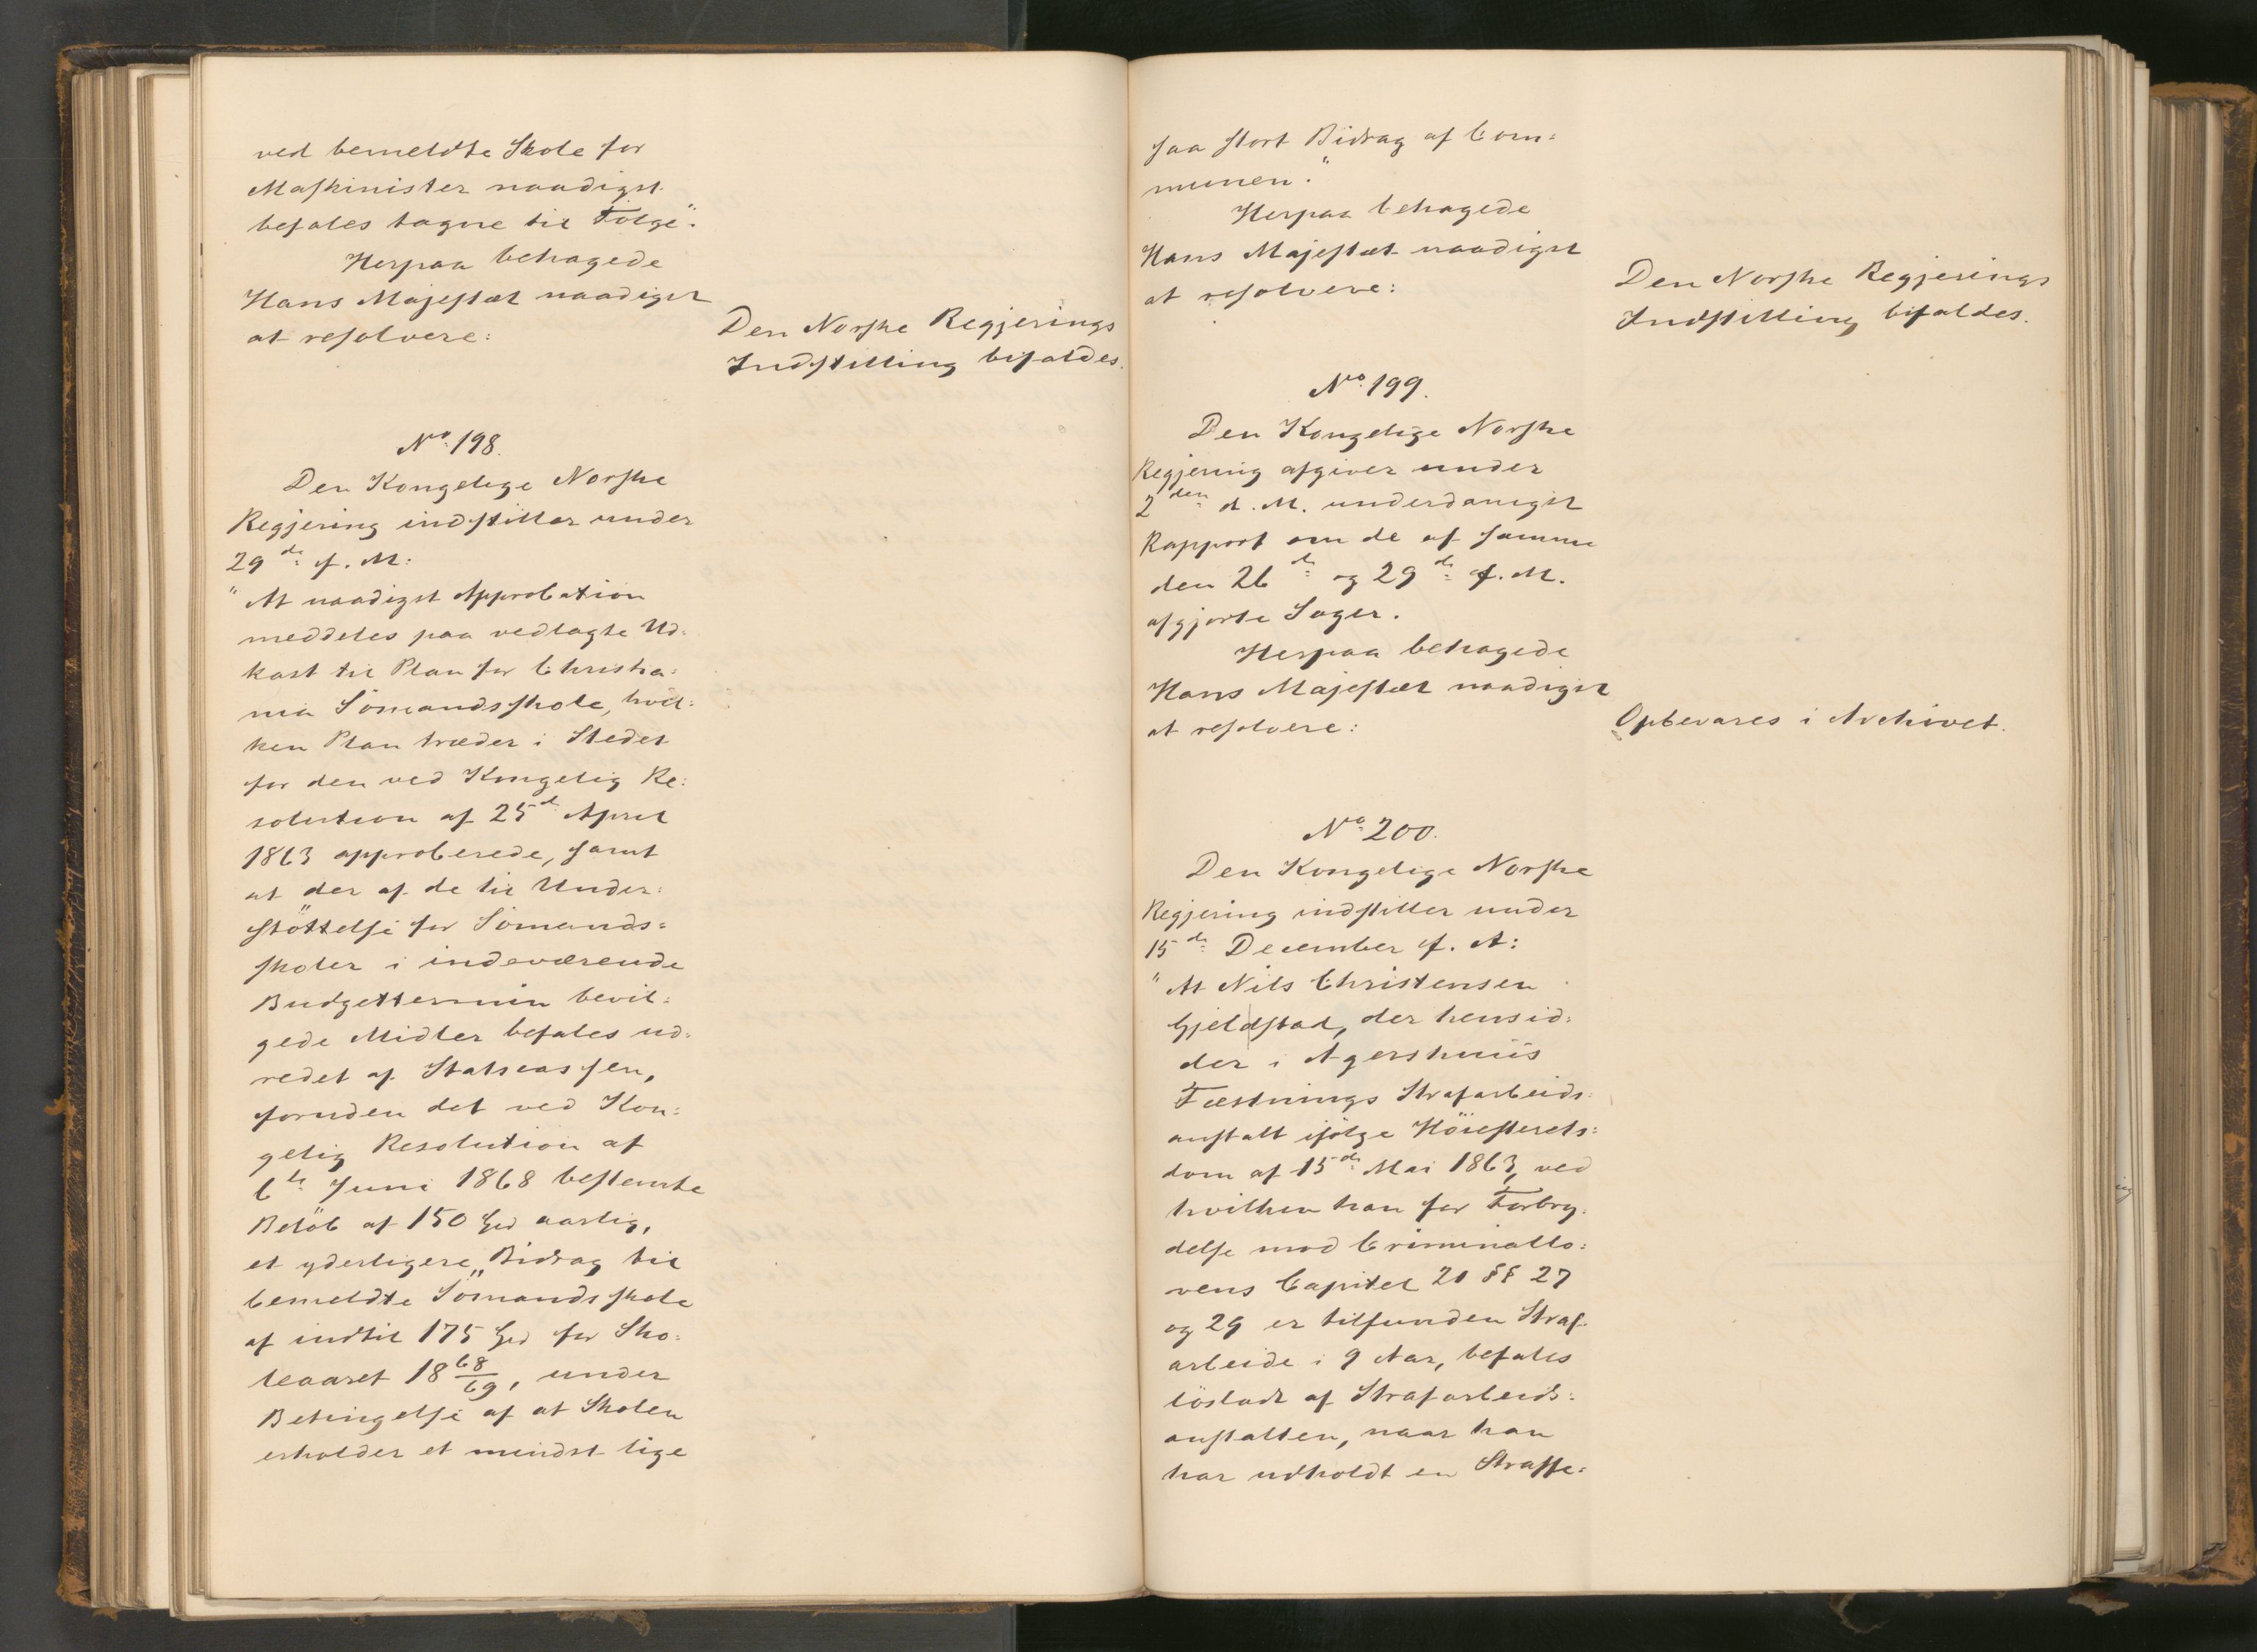 ved bemeldte Skole for
Maskinister naadigst
befales tagne til Følge".
Herpaa behagede
Hans Majestæt naadigst
at resolvere:
Den Norske Regjerings
Indstilling bifaldes.
No 198.
Den Kongelige Norske
Regjering indstiller under
29de f. M:
"At naadigst Approbation
meddeles paa vedlagte Ud=
kast til Plan for Christia=
nia Sömandsskole, hvil=
ken Plan træder i Stedet
for den ved Kongelig Re=
solution af 25de April
1863 approberede, samt
at der af de til Under=
støttelse for Sömands=
skoler i indeværende
Budgettermin bevil=
gede Midler befales ud=
redet af Statscassen,
foruden det ved Kon=
gelig Resolution af
6te Juni 1868 bestemte
Belöb af 150 Spd aarlig,
et yderligere Bidrag til
bemeldte Sömandsskole
af indtil 175 Spd for Sko=
leaaret 18 68/69, under
Betingelse af at Skolen
erholder et mindst lige
saa stort Bidrag af Com=
munen."
Herpaa behagede
Hans Majestæt naadigst
at resolvere:
Den Norske Regjerings
Indstilling bifaldes.
No 199.
Den Kongelige Norske
Regjering afgiver under
2den d. M. underdanigst
Rapport om de af samme
den 26de og 29de f. M.
afgjorte Sager.
Herpaa behagede
Hans Majestæt naadigst
at resolvere:
Opbevares i Archivet.
No 200.
Den Kongelige Norske
Regjering indstiller under
15de December f. A:
"At Nils Christensen
Gjeldstad, der hensid=
der i Agershuus
Fæstnings Strafarbeids=
anstalt ifølge Höiesterets=
dom af 15de Mai 1863, ved
hvilken han for Forbry=
delse mod Criminallo=
vens Capitel 21 §§ 27
og 29 er tilfunden Straf=
arbeide i 9 Aar, befales
lösladt af Strafarbeids=
anstalten, naar han
har udholdt en Straffe=